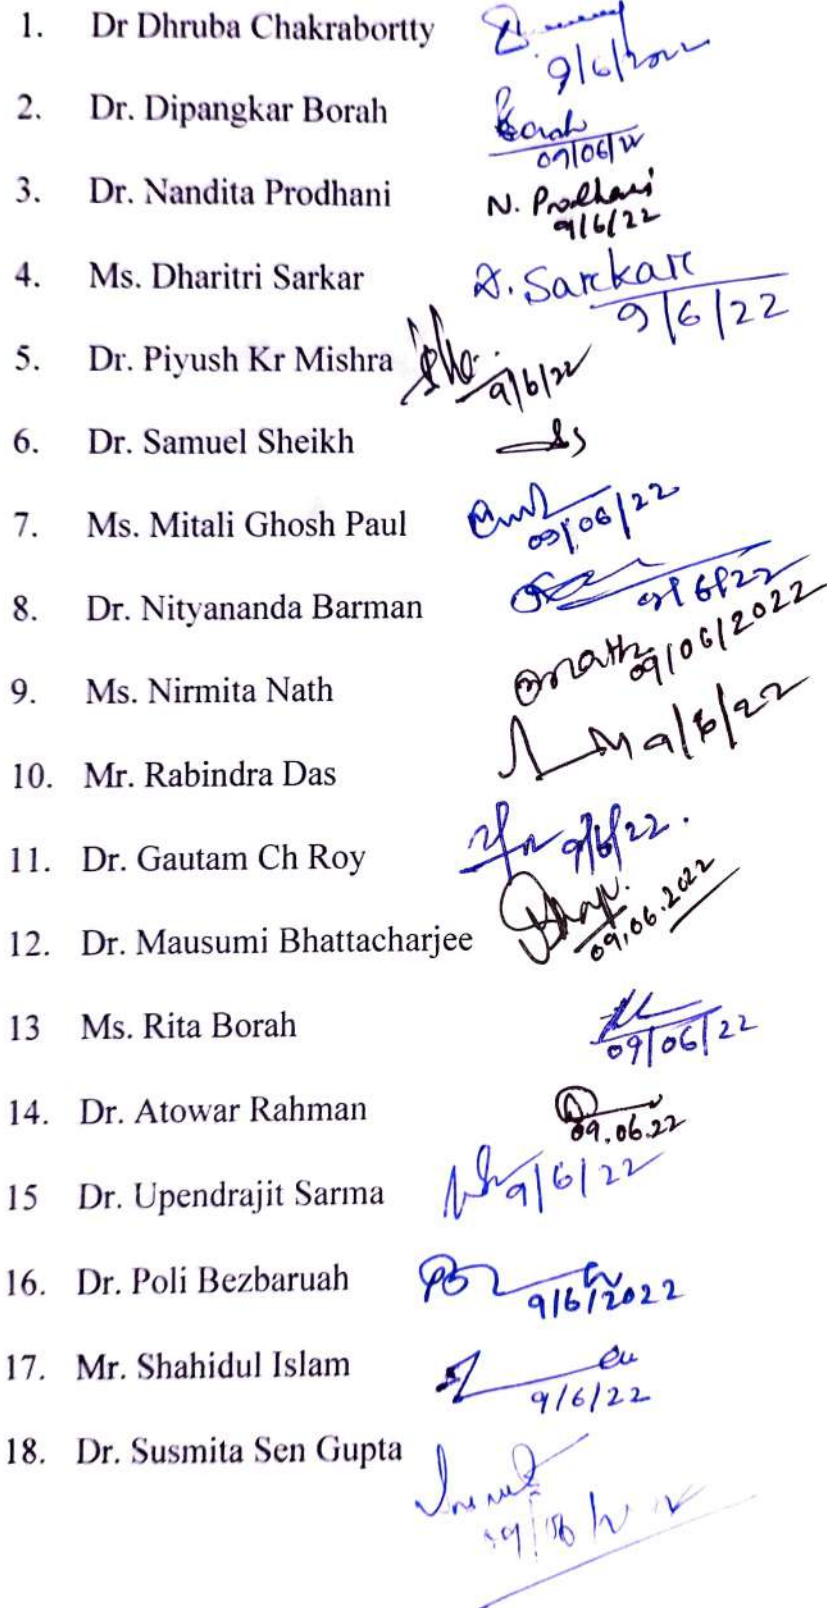 1. Dr Dhruba Chakrabortty
9/6/2022
2. Dr. Dipangkar Borah
Borah
09/06/22
3. Dr. Nandita Prodhani N. Prodhani
9/6/22
4. Ms. Dharitri Sarkar D. Sarkar
9/6/22
5. Dr. Piyush Kr Mishra
9/6/22
6. Dr. Samuel Sheikh
7. Ms. Mitali Ghosh Paul
09/06/22
8. Dr. Nityananda Barman 9/6/22
9. Ms. Nirmita Nath Nath 09/06/2022
10. Mr. Rabindra Das 9/6/22
11. Dr. Gautam Ch Roy 9/6/22.
12. Dr. Mausumi Bhattacharjee
09.06.2022
13 Ms. Rita Borah
09/06/22
14. Dr. Atowar Rahman
09.06.22
15 Dr. Upendrajit Sarma 9/6/22
16. Dr. Poli Bezbaruah
9/6/2022
17. Mr. Shahidul Islam
9/6/22
18. Dr. Susmita Sen Gupta